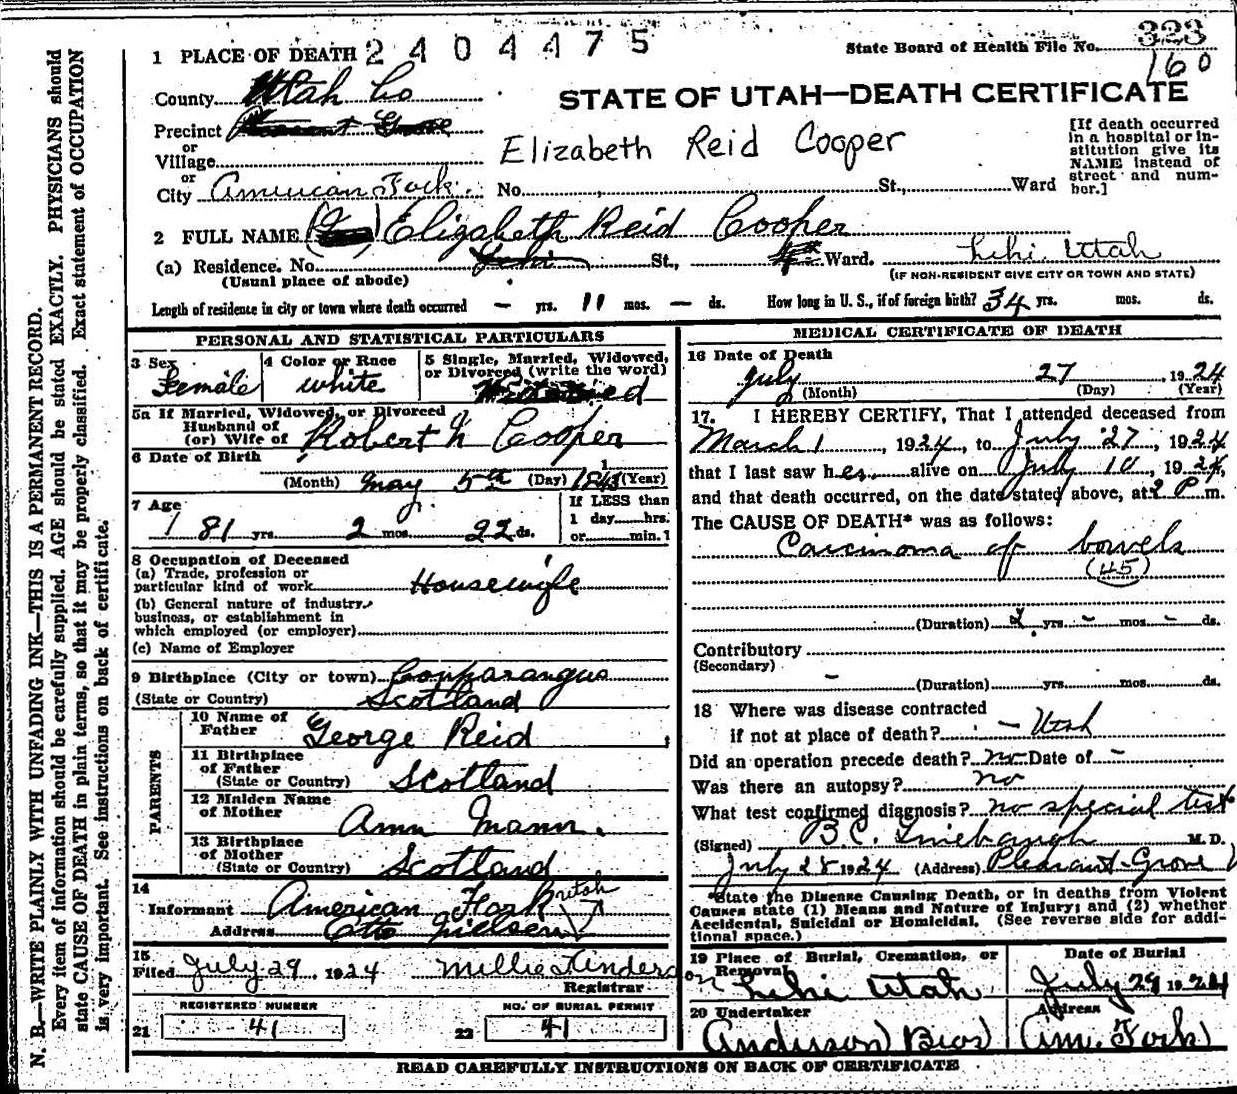 2404475
State Board of Health File No. 323
160
1 PLACE OF DEATH
County Utah Co
STATE OF UTAH—DEATH CERTIFICATE
Precinct Pleasant Grove
or
Village
Elizabeth Reid Cooper
[If death occurred in a hospital or institution give its NAME instead of street and number.]
or
City American Fork. No. St., Ward
2 FULL NAME Elizabeth Reid Cooper
(a) Residence. No. Lehi St., Ward. Lehi Utah
(Usual place of abode) (IF NON-RESIDENT GIVE CITY OR TOWN AND STATE)
Length of residence in city or town where death occurred — yrs. 11 mos. — ds. How long in U. S., if of foreign birth? 34 yrs. mos. ds.
PERSONAL AND STATISTICAL PARTICULARS
3 Sex Female
4 Color or Race White
5 Single, Married, Widowed, or Divorced (write the word) Widowed
5a If Married, Widowed, or Divorced
Husband of
(or) Wife of Robert Cooper
6 Date of Birth
(Month) May 5th (Day) (Year)
7 Age
81 yrs. 2 mos. 22 ds.
If LESS than
1 day......hrs.
or......min.
8 Occupation of Deceased
(a) Trade, profession or
particular kind of work Housewife
(b) General nature of industry,
business, or establishment in
which employed (or employer)
(c) Name of Employer
9 Birthplace (City or town)
(State or Country) Scotland
PARENTS
10 Name of
Father George Reid
11 Birthplace
of Father
(State or Country) Scotland
12 Maiden Name
of Mother Ann Mann.
13 Birthplace
of Mother
(State or Country) Scotland
14
Informant American Fork Utah
Address Otto Nielsen
15
Filed July 29, 1924 Millie Anderson
Registrar
REGISTERED NUMBER
21 41
NO. OF BURIAL PERMIT
22 41
MEDICAL CERTIFICATE OF DEATH
16 Date of Death
July 27 1924
(Month) (Day) (Year)
17. I HEREBY CERTIFY, That I attended deceased from
March 1, 1924, to July 27, 1924
that I last saw her alive on July 10, 1924,
and that death occurred, on the date stated above, at 2 P. m.
The CAUSE OF DEATH* was as follows:
Carcinoma of bowels
(45)
(Duration) 2 yrs. - mos. - ds.
Contributory
(Secondary)
(Duration) yrs. mos. ds.
18 Where was disease contracted
if not at place of death? — Utah
Did an operation precede death? no Date of -
Was there an autopsy? no
What test confirmed diagnosis? no special test
(Signed) B.C. Linebaugh M. D.
July 28 1924 (Address) Pleasant Grove U
*State the Disease Causing Death, or in deaths from Violent
Causes state (1) Means and Nature of Injury; and (2) whether
Accidental, Suicidal or Homicidal. (See reverse side for addi-
tional space.)
19 Place of Burial, Cremation, or
Removal
Lehi Utah
Date of Burial
July 29 1924
20 Undertaker
Anderson Bros
Address
Am. Fork
READ CAREFULLY INSTRUCTIONS ON BACK OF CERTIFICATE
N. B.—WRITE PLAINLY WITH UNFADING INK—THIS IS A PERMANENT RECORD.
Every item of information should be carefully supplied. AGE should be stated EXACTLY. PHYSICIANS should
state CAUSE OF DEATH in plain terms, so that it may be properly classified. Exact statement of OCCUPATION
is very important. See instructions on back of certificate.